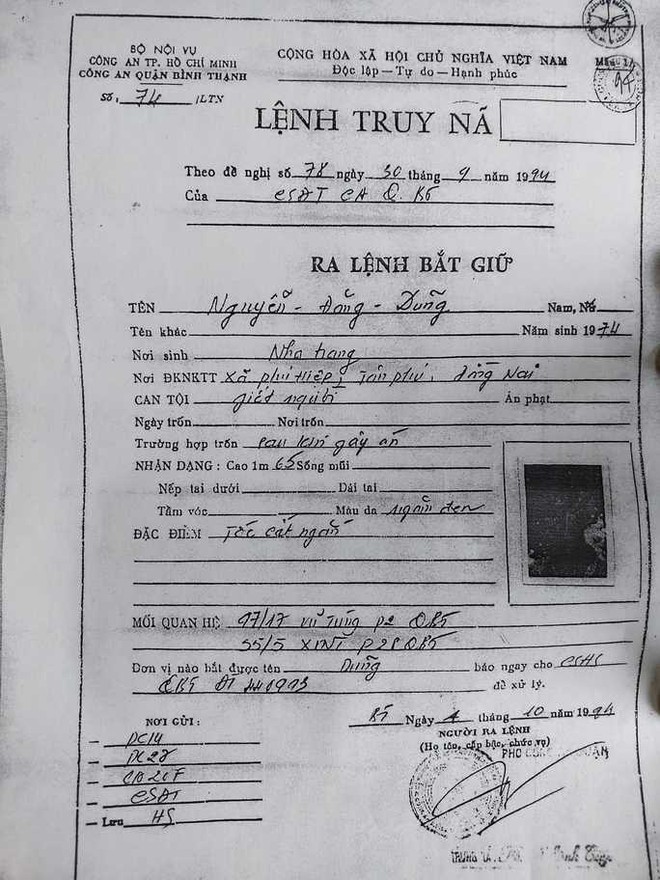 BỘ NỘI VỤ
CÔNG AN TP. HỒ CHÍ MINH
CÔNG AN QUẬN BÌNH THẠNH
Số: 74 /LTN
CỘNG HÒA XÃ HỘI CHỦ NGHĨA VIỆT NAM
Độc lập - Tự do - Hạnh phúc
LỆNH TRUY NÃ
Theo đề nghị số 78 ngày 30 tháng 9 năm 1994
Của CSĐT CA Q. BT
RA LỆNH BẮT GIỮ
TÊN Nguyễn - Đăng - Dũng Nam, Nữ
Tên khác Năm sinh 1974
Nơi sinh Nha Trang
Nơi ĐKNKTT Xã phú Hiệp, Tân phú, Đồng Nai
CAN TỘI giết người Án phạt
Ngày trốn Nơi trốn
Trường hợp trốn sau khi gây án
NHẬN DẠNG : Cao 1m 65 Sống mũi
Nếp tai dưới Dái tai
Tầm vóc Màu da ngăm đen
ĐẶC ĐIỂM Tóc cắt ngắn
MỐI QUAN HỆ 97/17 Vũ Tùng P2 QBT
55/5 XVNT P28 QBT
Đơn vị nào bắt được tên Dũng báo ngay cho CSHS
QBT ĐT 440903 để xử lý.
NƠI GỬI :
- PC14
- PC28
-
- CSĐT
- Lưu HS
BT Ngày 4 tháng 10 năm 1994
NGƯỜI RA LỆNH
(Họ tên, cấp bậc, chức vụ)